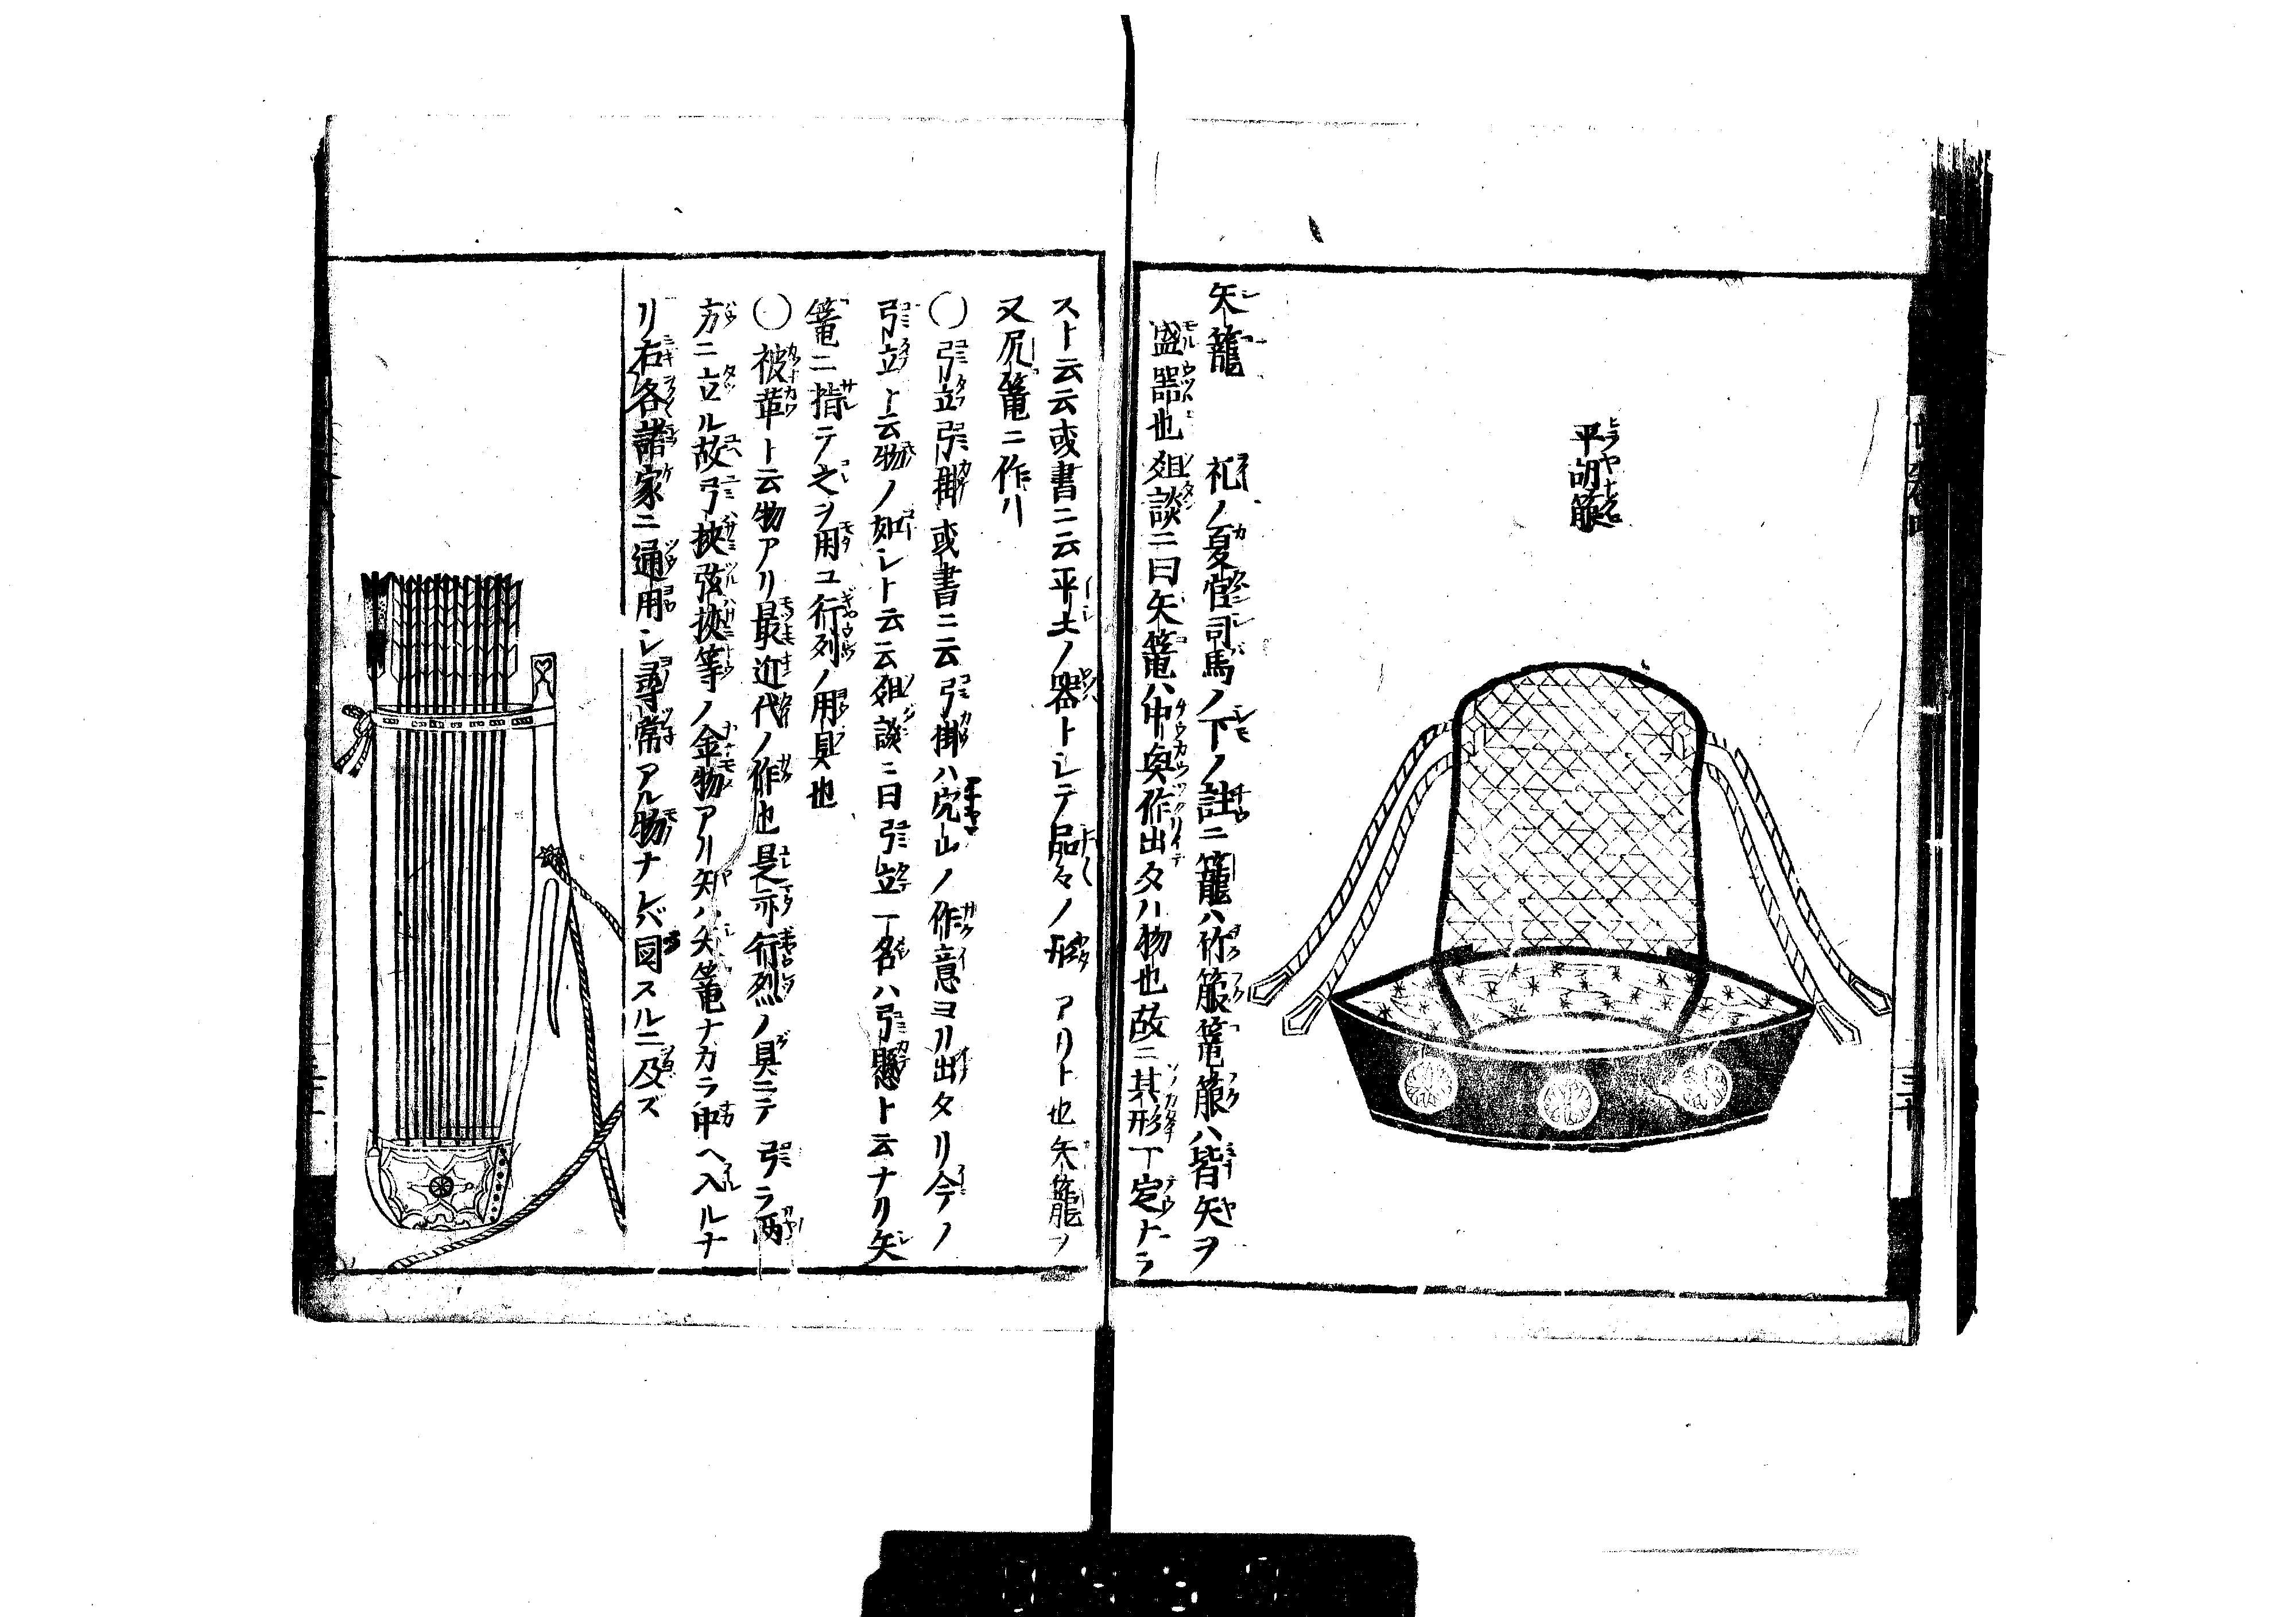 平胡簶
矢籠 礼ノ夏官司馬ノ下ノ註ニ籠ハ竹箙篭箙ハ皆矢ヲ
盛器也俎談ニ曰矢篭ハ中奥作出タハ物也故ニ其形丁定ナラ
スト云云或書ニ云平士ノ器トシテ品々ノ形アリト也矢籠ヲ
又尻篭ニ作リ
〇引立引掛或書ニ云引掛ハ穴山ノ作意ヨリ出タリ今ノ
引立ト云物ノ如シト云云俎談ニ曰引立丁名ハ引懸ト云ナリ矢
篭ニ指テ之ヲ用ユ行列ノ用具也
〇被革ト云物アリ最近代ノ作也是亦行烈ノ具ニテ弓ラ両
方ニ立ル故弓挾弦挾等ノ金物アリ矢篭ナカラ中ヘ入ルナ
リ右各諸家ニ通用シ尋常アル物ナレバ図スルニ及ズ
三十